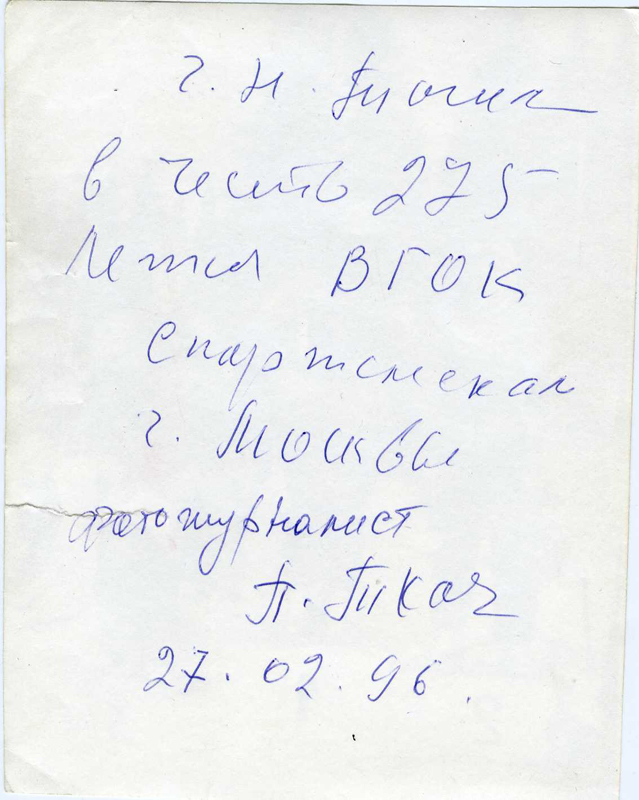 г. Н. Тагил
в честь 275
летия ВГОК
г. Москвы
фотожурналист
П. Ткач
27.02.96.